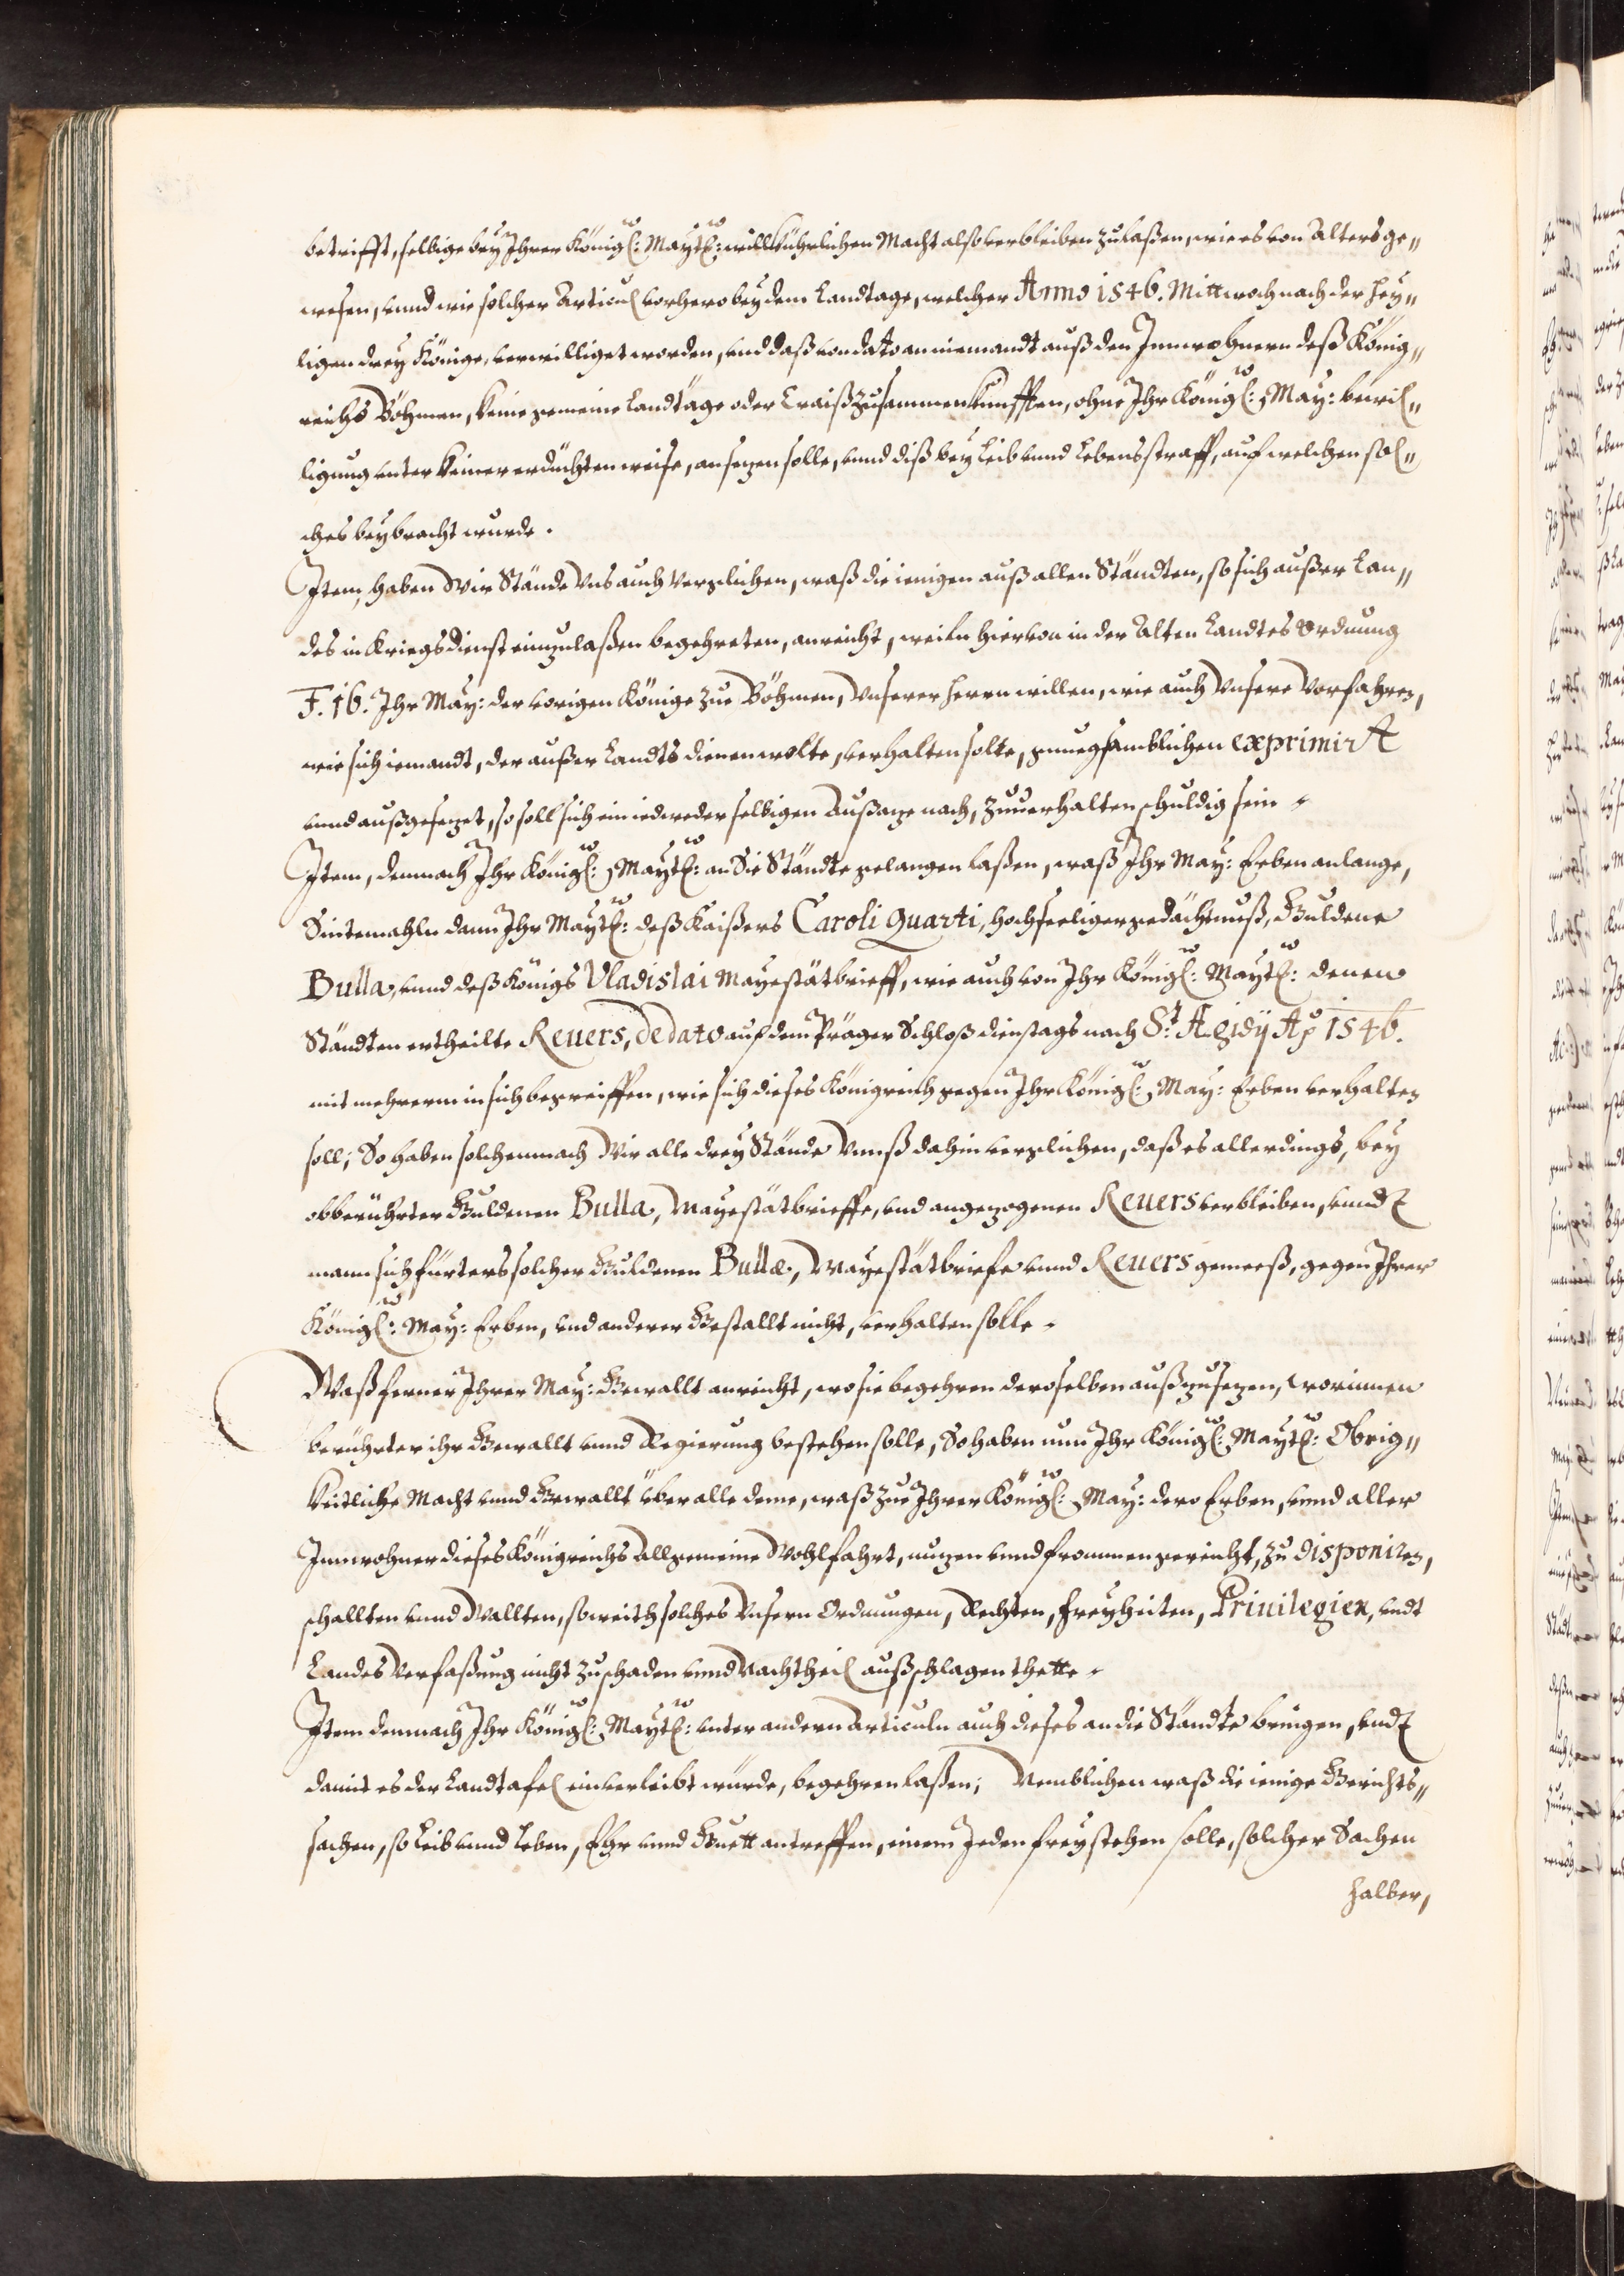 betrifft, selbige bey Ihrer Königl: Maytt: willkührlichen Macht also verbleiben zulaßen, wie es von Alters ge„
wesen, vnnd wie solcher Articul vorhero bey dem Landtage, welcher Anno 1546. Mittwoch nach der hey„
ligen drey Könige, verwilliget worden, vnd daß von dato an niemandt auß den Innwohnern deß König„
reichs Böhmen, keine gemeine Landtäge oder Craiß zusammenkunfften, ohne Ihr Königl: May: bewil„
ligung vnter keiner erdachten weise, ansezen solle, vnnd diß bey Leib vnnd Lebens straff, auf welchen sol„
ches beybracht wurde.
Item, haben Wir Stände Vns auch verglichen, waß die ienigen auß allen Ständten, so sich außer Lan„
des in Kriegsdienst einzulaßen begehreten, anreicht, weiln hiervon in der Alten Landtes Ordnung
F. 16. Ihr May: der vorigen Könige zue Böhmen, Vnserer herrn willen, wie auch Vnsere Vorfahren,
wie sich iemandt, der außer Landts dienen wolte, verhalten solte, gnuegsamblichen exprimirt
vnnd außgesezet, so soll sich ein iedweder selbigen Aussaze nach, zuuerhalten schuldig sein.
Item, demnach Ihr Königl: Maytt: an die Ständte gelangen laßen, waß Ihr May: Erben anlange,
Sintemahln dann Ihr Maytt: deß Kaißers Caroli Quarti, hochseeliger gedächtnuß, Guldene
Bulla, vnnd deß Königs Vladislai Mayestätbrieff, wie auch von Ihr Königl: Maytt: denen
Ständten ertheilte Reuers, de dato auf dem Präger Schloß dienstags nach St: Ægidÿ Ao 1546.
mit mehrerm in sich begreiffen, wie sich dieses Königreich gegen Ihr Königl: May: Erben verhalten
soll; So haben solchemnach Wir alle drey Stände Vnnß dahin verglichen, daß es allerdings, bey
obberührter Guldenen Bulla, Mayestätbrieffe, vnd angezogenen Reuers verbleiben, vnndt
mann sich fürters solcher Guldenen Bullæ, Mayestätbriefe vnnd Reuers gemeeß, gegen Ihrer
Königl: May: Erben, vnd anderer Gestallt nicht, verhalten solle.
Waß ferner Ihrer May: Gewallt anreicht, wo sie begehren deroselben außzusezen, worinnen
berührter ihr Gewallt vnnd Regierung bestehen solle, So haben nun Ihr Königl: Maytt: Obrig„
keitliche Macht vnnd Gewallt über alle deme, waß zue Ihrer Königl: May: dero Erben, vnnd aller
Innwohner dieses Königreichs Allgemeine Wohlfahrt, nuzen vnnd frommen gereicht, zu disponiren,
schallten vnnd Wallten, soweith solches Vnsern Ordnungen, Rechten, freyheiten, Priuilegien, vndt
Landes Verfaßung nicht zu schaden vnnd Nachtheil außschlagen thette.
Item demnach Ihr Königl: Maytt: vnter andern Articuln auch dieses an die Ständte bringen, vndt
damit es der Landtafel einverleibt würde, begehren laßen; Nemblichen waß die ienige Gerichts„
sachen, so Leib vnnd Leben, Ehr vnnd Guett antreffen, einem Jeden frey stehen solle, solcher Sachen
halber,